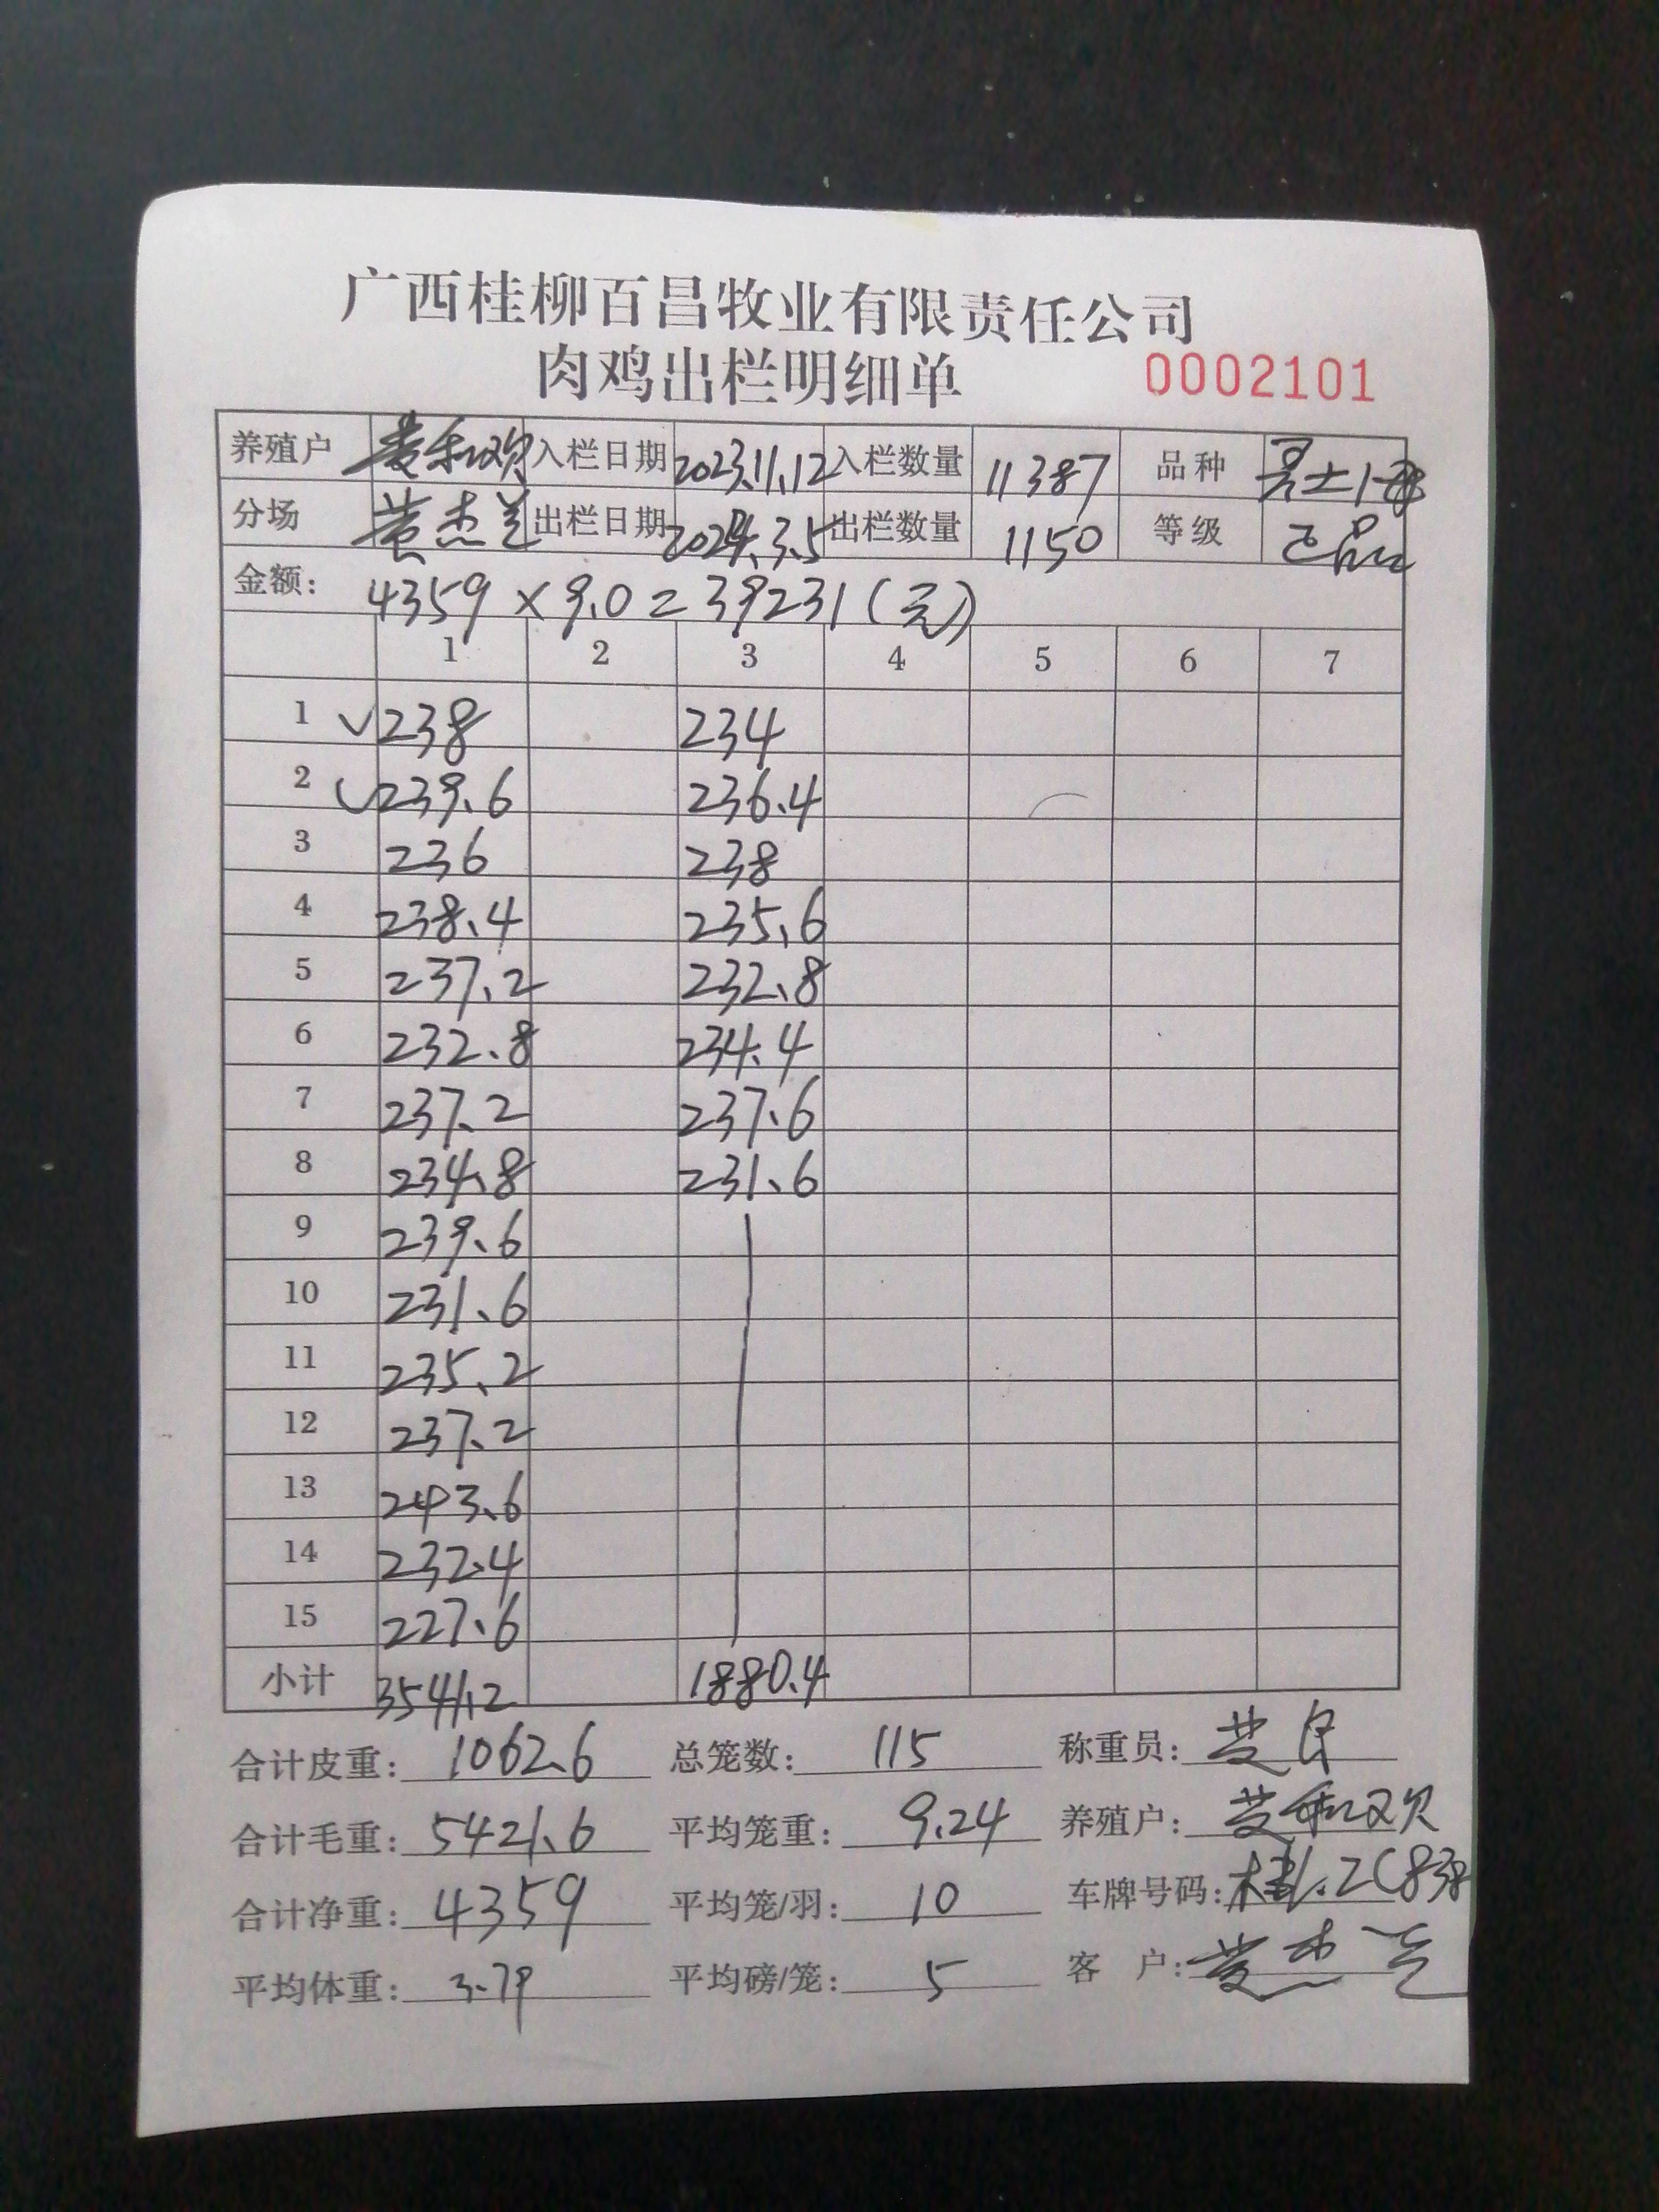 广西桂柳百昌牧业有限责任公司
肉鸡出栏明细单 0002101
养殖户 黄和欢 入栏日期 2023.11.12 入栏数量 11387 品种
分场 黄杰兰 出栏日期 2024.3.5 出栏数量 1150 等级 正品
金额: 4359×9.0=39231(元)
1 2 3 4 5 6 7
1 ✓238 234
2 ✓239.6 236.4
3 236 238
4 238.4 235.6
5 237.2 232.8
6 232.8 234.4
7 237.2 237.6
8 234.8 231.6
9 239.6
10 231.6
11 235.2
12 237.2
13 243.6
14 232.4
15 227.6
小计 3541.2 1880.4
合计皮重: 1062.6 总笼数: 115 称重员:
合计毛重: 5421.6 平均笼重: 9.24 养殖户: 黄和欢
合计净重: 4359 平均笼/羽: 10 车牌号码:
平均体重: 3.79 平均磅/笼: 5 客 户: 黄杰兰